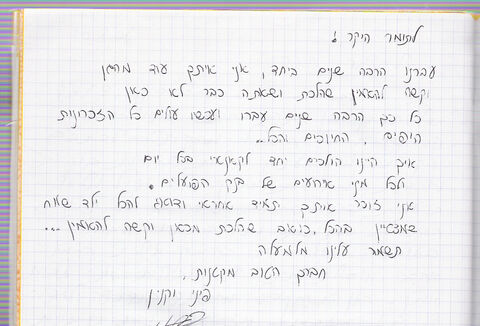 לתומר היקר!
עברנו הרבה שנים ביחד, אני איתך עוד מהגן
וקשה להאמין שהלכת ושאתה כבר לא כאן
כל כך הרבה שנים עברו ועכשו עולים כל הזכרונות
היפים, החיוכים והכל..
איך היינו הולכים יחד לקאנטרי בכל יום
ולכל מני אירועים של בנק הפועלים.
אני זוכר אותך תמיד אחראי ודואג להכל ילד שמח
שמצטיין בהכל, כואב שהלכת מכאן וקשה להאמין...
תשמור עלינו מלמעלה
חברך הטוב מקטנות,
פיני וקנין